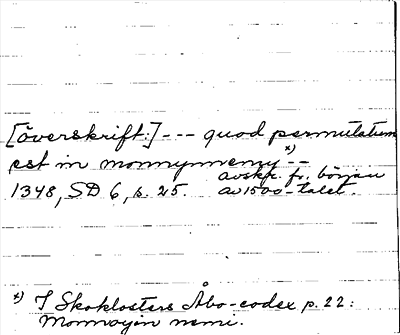 [överskrift:] --- quod permutatum
est in monnynnemy x) --
avskr. fr. början
1348, SD 6, s. 25. av 1500-talet.
x) I Skoklosters Åbo-codex p. 22:
Monnoyin nemi.